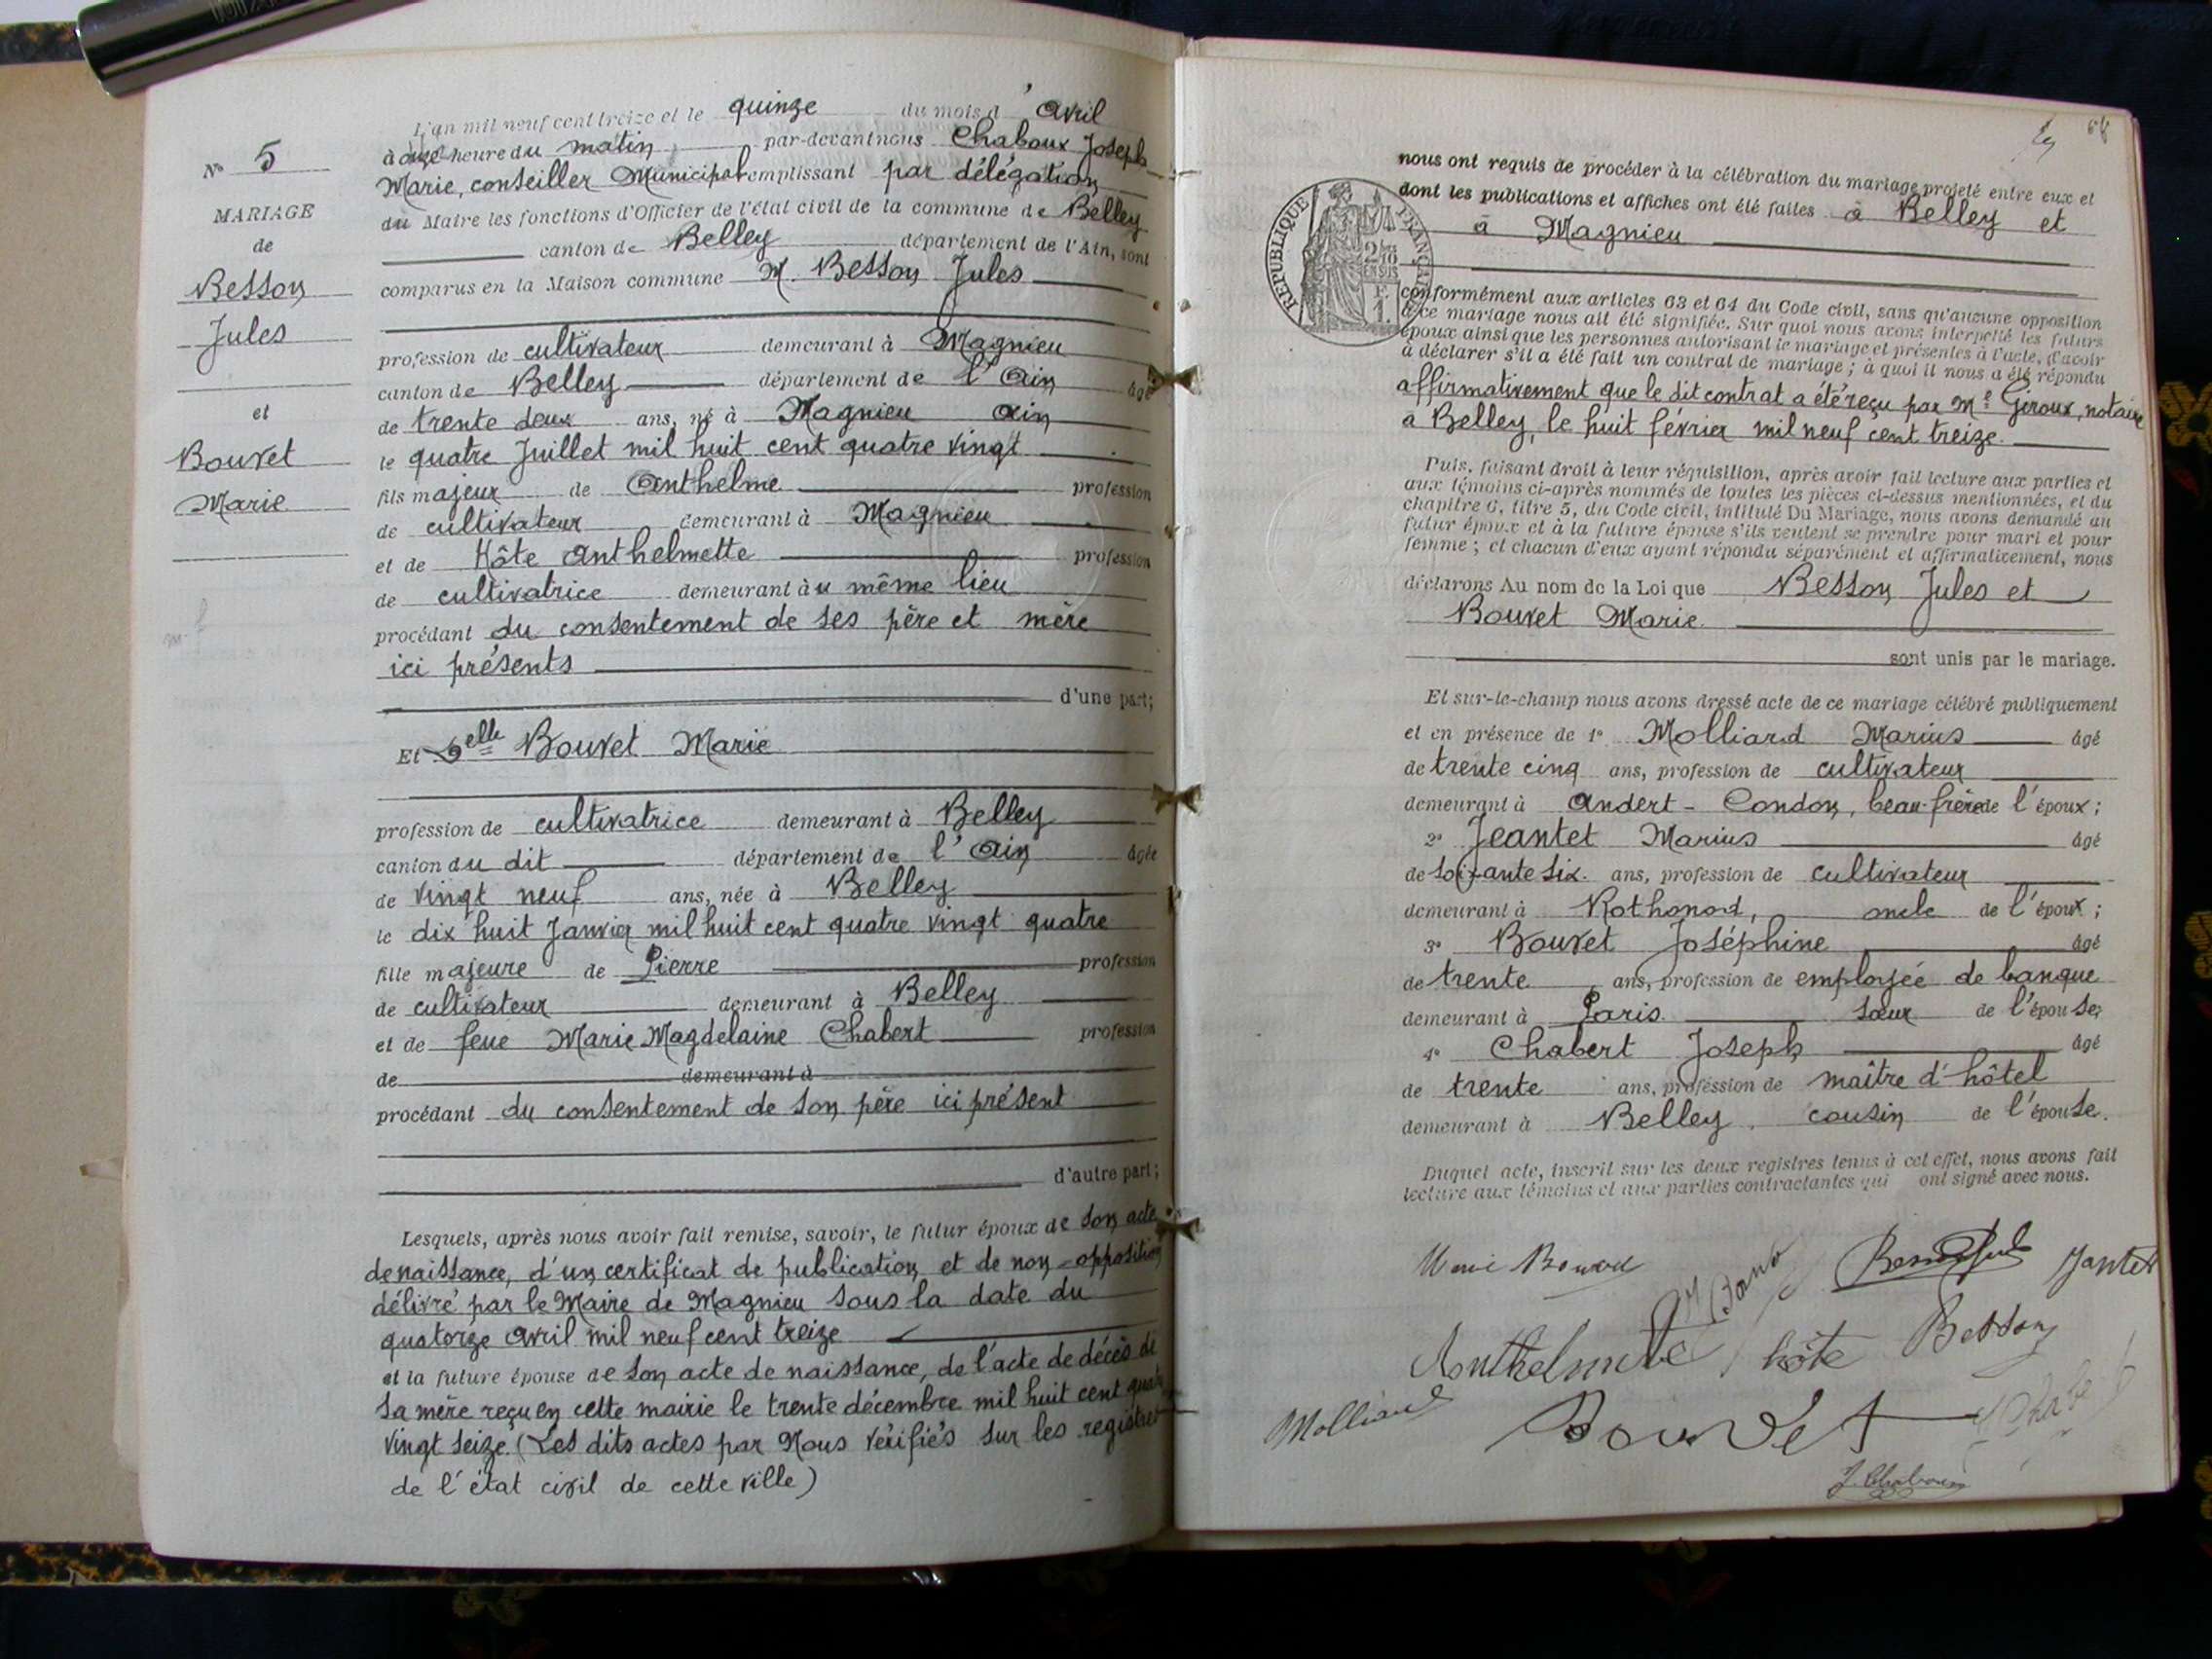 N° 5
MARIAGE
de
Besson
Jules
et
Bouvet
Marie
L'an mil neuf cent treize et le quinze du mois d'avril
à onze heure du matin par-devant nous Chaboux Joseph
Marie, conseiller Municipal remplissant par délégation
du Maire les fonctions d'Officier de l'état civil de la commune de Belley
canton de Belley département de l'Ain, sont
comparus en la Maison commune M. Besson Jules
profession de cultivateur demeurant à Magnieu
canton de Belley département de l'Ain âgé
de trente deux ans, né à Magnieu Ain
le quatre Juillet mil huit cent quatre vingt
fils majeur de Anthelme profession
de cultivateur demeurant à Magnieu
et de Hôte Anthelmette profession
de cultivatrice demeurant au même lieu
procédant du consentement de ses père et mère
ici présents
d'une part;
Et Delle Bouvet Marie
profession de cultivatrice demeurant à Belley
canton du dit département de l'Ain âgée
de vingt neuf ans, née à Belley
le dix huit Janvier mil huit cent quatre vingt quatre
fille majeure de Pierre profession
de cultivateur demeurant à Belley
et de feue Marie Magdelaine Chabert profession
de demeurant à
procédant du consentement de son père ici présent
d'autre part;
Lesquels, après nous avoir fait remise, savoir, le futur époux de son acte
de naissance, d'un certificat de publication et de non-opposition
délivré par le Maire de Magnieu sous la date du
quatorze avril mil neuf cent treize
et la future épouse de son acte de naissance, de l'acte de décès de
sa mère reçu en cette mairie le trente décembre mil huit cent quatre
vingt seize. (Les dits actes par Nous vérifiés sur les registres
de l'état civil de cette ville)
RÉPUBLIQUE FRANÇAISE
nous ont requis de procéder à la célébration du mariage projeté entre eux et
dont les publications et affiches ont été faites à Belley et
à Magnieu
conformément aux articles 63 et 64 du Code civil, sans qu'aucune opposition
à ce mariage nous ait été signifiée. Sur quoi nous avons interpellé les futurs
époux ainsi que les personnes autorisant le mariage et présentes à l'acte, d'avoir
à déclarer s'il a été fait un contrat de mariage ; à quoi il nous a été répondu
affirmativement que le dit contrat a été reçu par Me Giroux, notaire
à Belley, le huit février mil neuf cent treize.
Puis, faisant droit à leur réquisition, après avoir fait lecture aux parties et
aux témoins ci-après nommés de toutes les pièces ci-dessus mentionnées, et du
chapitre 6, titre 5, du Code civil, intitulé Du Mariage, nous avons demandé au
futur époux et à la future épouse s'ils veulent se prendre pour mari et pour
femme ; et chacun d'eux ayant répondu séparément et affirmativement, nous
déclarons Au nom de la Loi que Besson Jules et
Bouvet Marie.
sont unis par le mariage.
Et sur-le-champ nous avons dressé acte de ce mariage célébré publiquement
et en présence de 1° Molliard Marius âgé
de trente cinq ans, profession de cultivateur
demeurant à Andert-Condon, beau-frère de l'époux ;
2° Jeantet Marius âgé
de soixante six. ans, profession de cultivateur
demeurant à Rothonod, oncle de l'époux ;
3° Bouvet Joséphine âgé
de trente ans, profession de employée de banque
demeurant à Paris. sœur de l'épouse;
4° Chabert Joseph âgé
de trente ans, profession de maître d'hôtel
demeurant à Belley. cousin de l'épouse.
Duquel acte, inscrit sur les deux registres tenus à cet effet, nous avons fait
lecture aux témoins et aux parties contractantes qui ont signé avec nous.
Jantet
Anthelmette hôte Besson
Molliard Bouvet
J. Chaboux